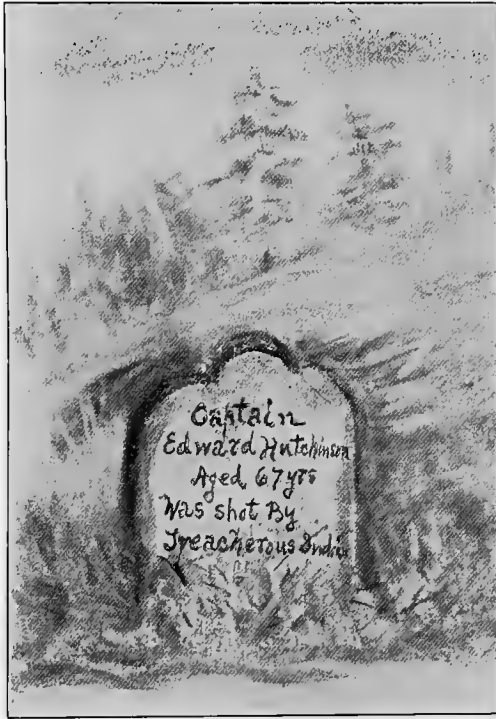 Captain
Edward Hutchinson
Aged 67 yrs
Was shot By
Treacherous Indi